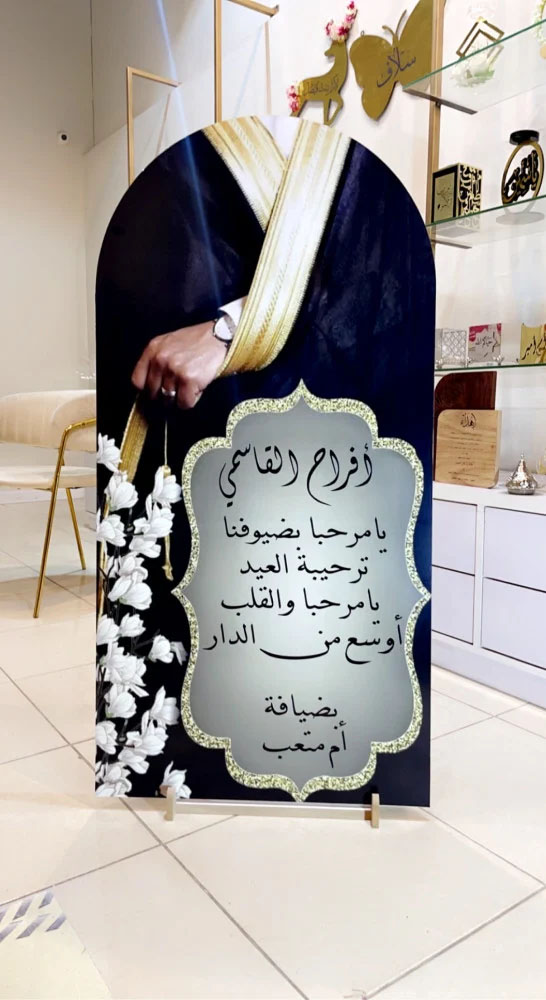 أفراح القاسمي
يا مرحبا بضيوفنا
ترحيبة العيد
يا مرحبا والقلب
أوسع من الدار
بضيافة
أم متعب
ستلاف